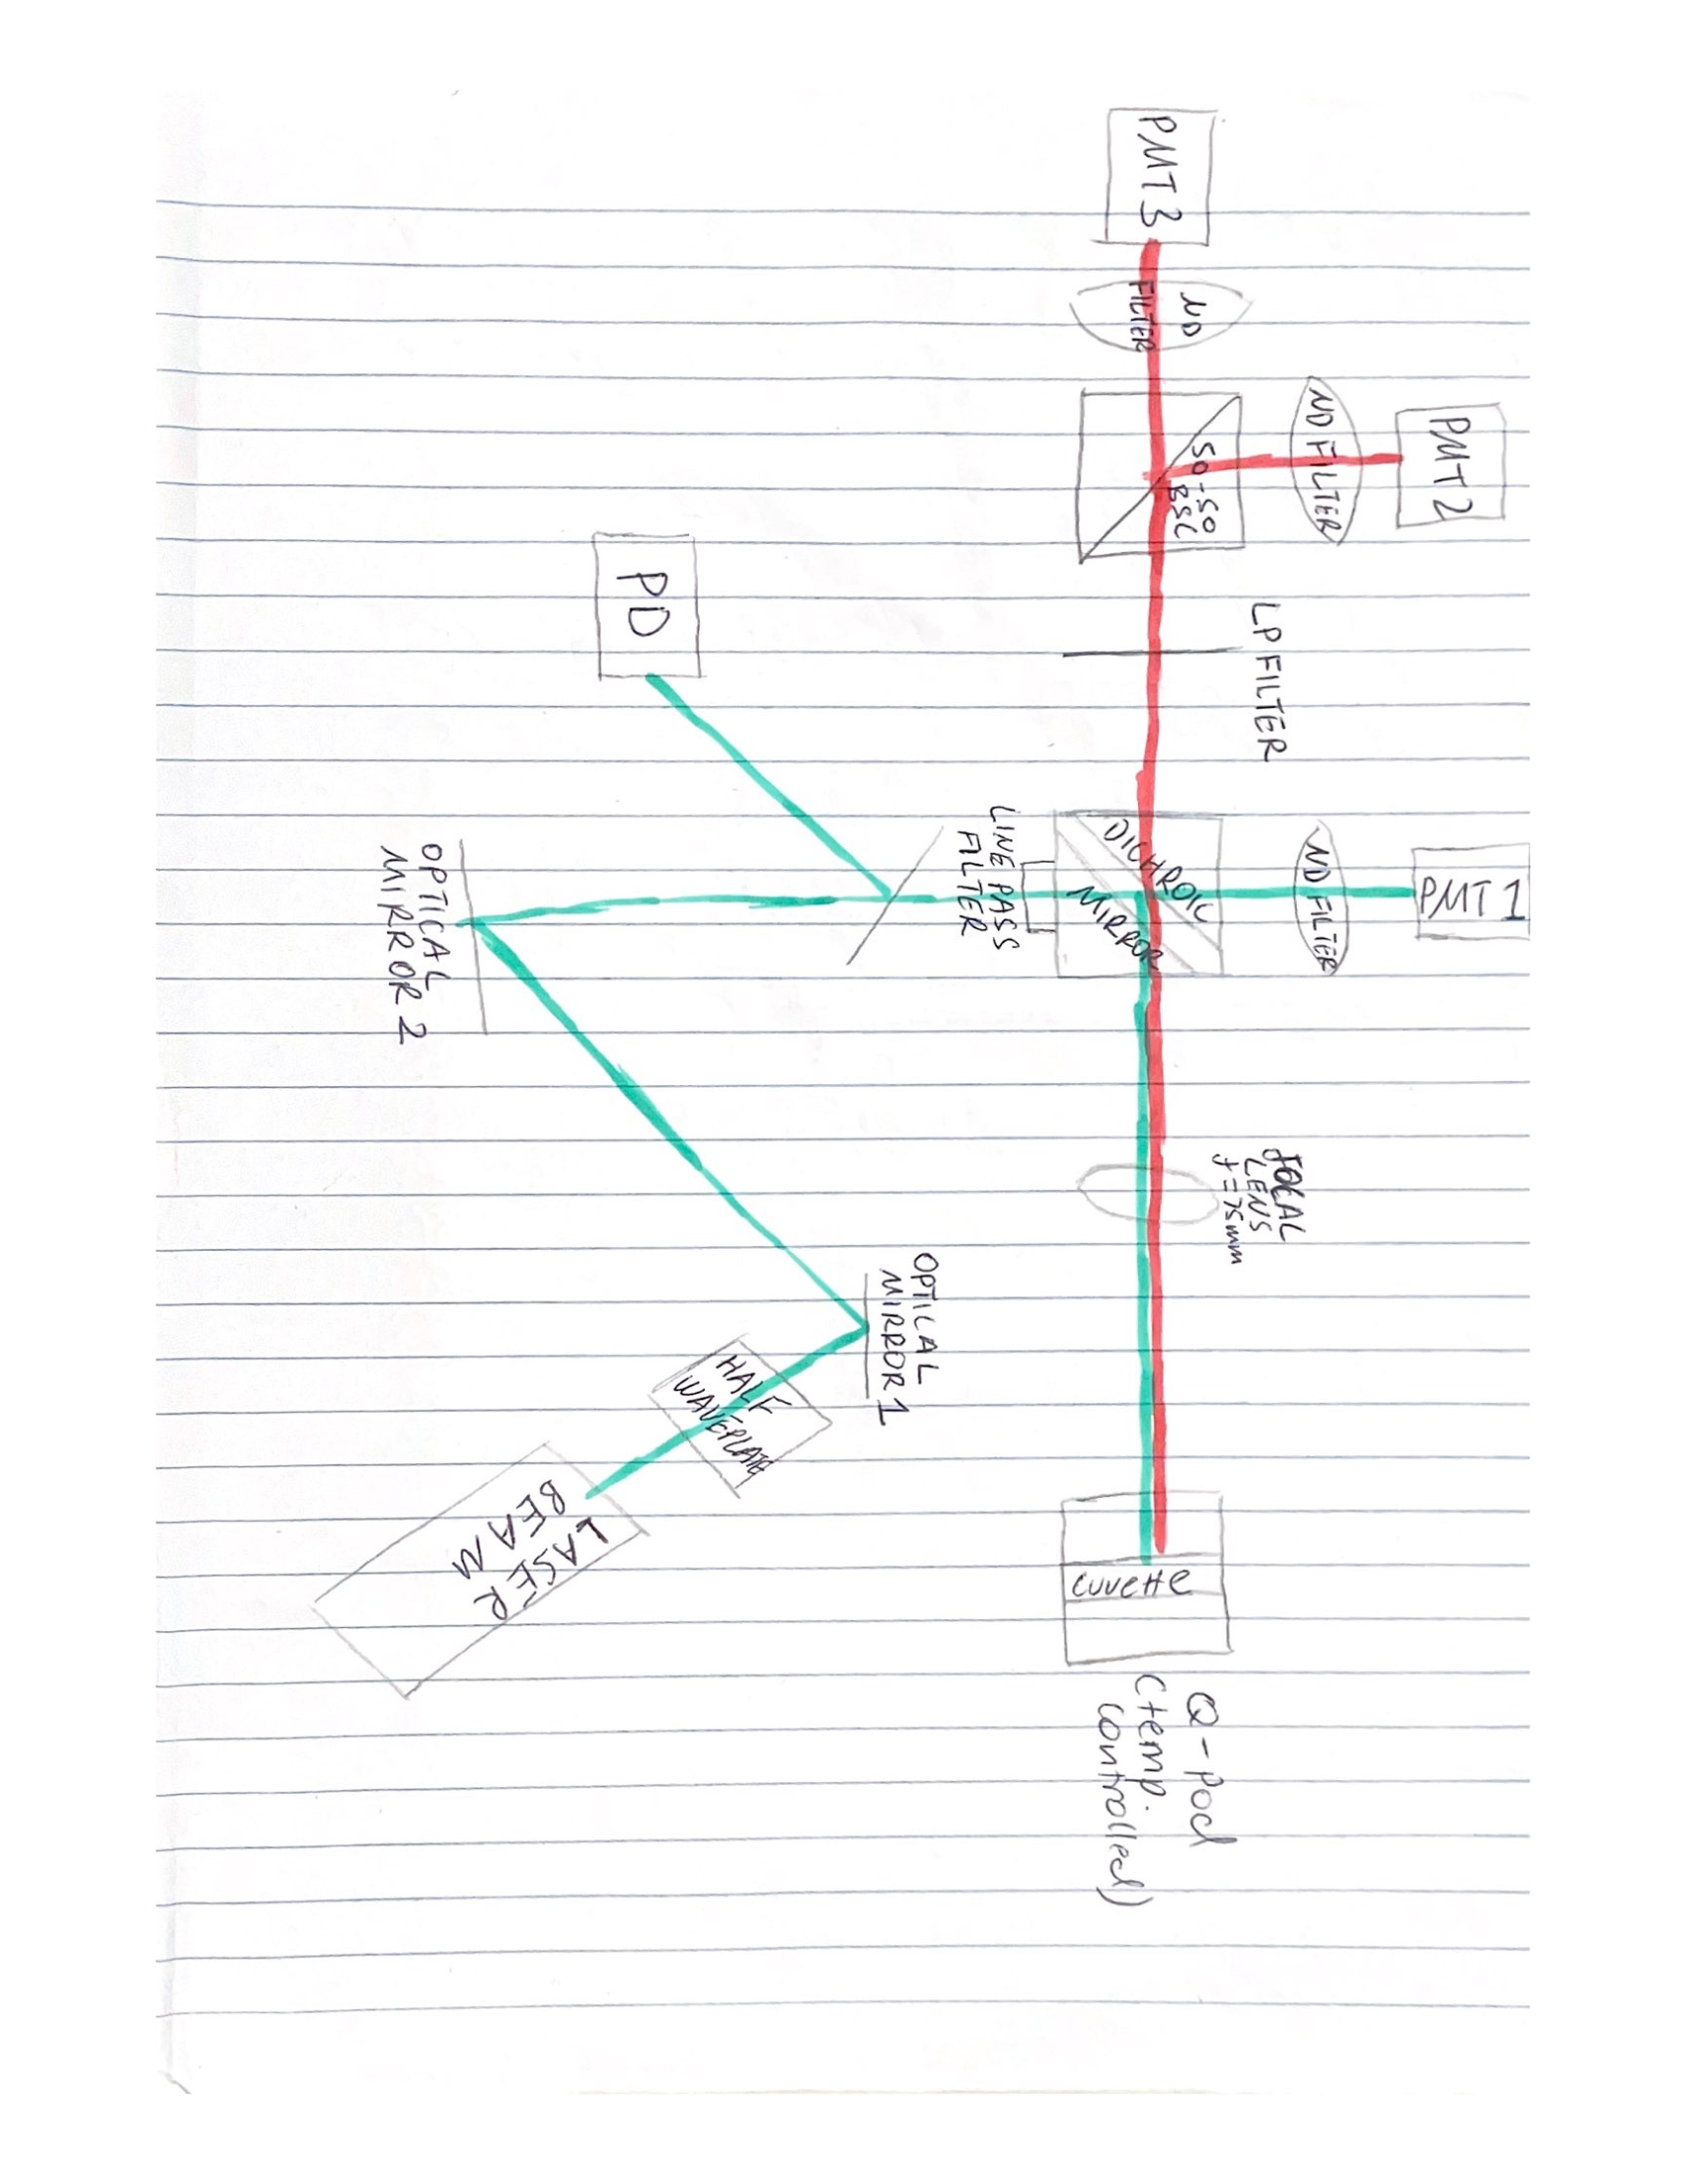 PMT 3
ND
FILTER
PMT 2
ND FILTER
50-50
BSC
LP FILTER
PD
PMT 1
ND FILTER
DICHROIC
MIRROR
LINE PASS
FILTER
OPTICAL
MIRROR 2
FOCAL
LENS
f=75mm
OPTICAL
MIRROR 1
HALF
WAVEPLATE
LASER
BEAM
cuvette
Q-pod
(temp.
controlled)